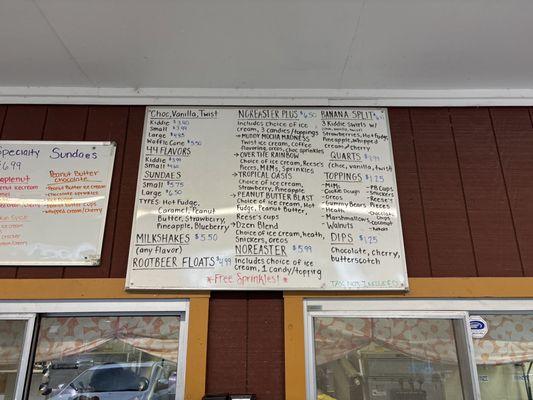 Specialty Sundaes
$6.99
Peanut Butter
chocolate sprinkles
whipped cream/cherry
Choc, Vanilla, Twist
Kiddie
Small $3.99
Large $4.85
Waffle Cone $5.50
44 FLAVORS
Kiddie $3.99
Small
SUNDAES
Small $5.75
Large $6.50
TYPES: Hot fudge,
Caramel, Peanut
Butter, Strawberry,
Pineapple, Blueberry
MILKSHAKES $5.50
(any flavor)
ROOTBEER FLOATS $4.99
NOREASTER PLUS $6.50
Includes Choice of ice
cream, 3 candies/toppings
→MUDDY MOCHA MADNESS
Twist ice cream, coffee
flavoring, oreo, choc sprinkles
→OVER THE RAINBOW
Choice of ice cream, Reese's
Pieces, M&Ms, Sprinkles
→TROPICAL OASIS
Choice of ice cream,
Strawberry, Pineapple
→PEANUT BUTTER BLAST
Choice of ice cream, Hot
Fudge, Peanut Butter,
Reese's cups
→Dzen Blend
Choice of ice cream, heath,
Snickers, oreos
NOREASTER $5.99
Includes choice of ice
cream, 1 candy/topping
*Free Sprinkles!*
BANANA SPLIT
3 Kiddie Swirls w/
(choc, vanilla, twist)
Strawberries, Hot fudge,
Pineapple, whipped
cream/cherry
QUARTS
(choc, vanilla, twist)
TOPPINGS $1.25
-M&Ms
-Cookie Dough
-Oreos
-Gummy Bears
-Heath
-Marshmallows
-Walnuts
-PB Cups
-Snickers
-Reese's
Pieces
-Chocolate
Chips
-Coconut
DIPS $1.25
Chocolate, cherry,
butterscotch
TAX NOT INCLUDED